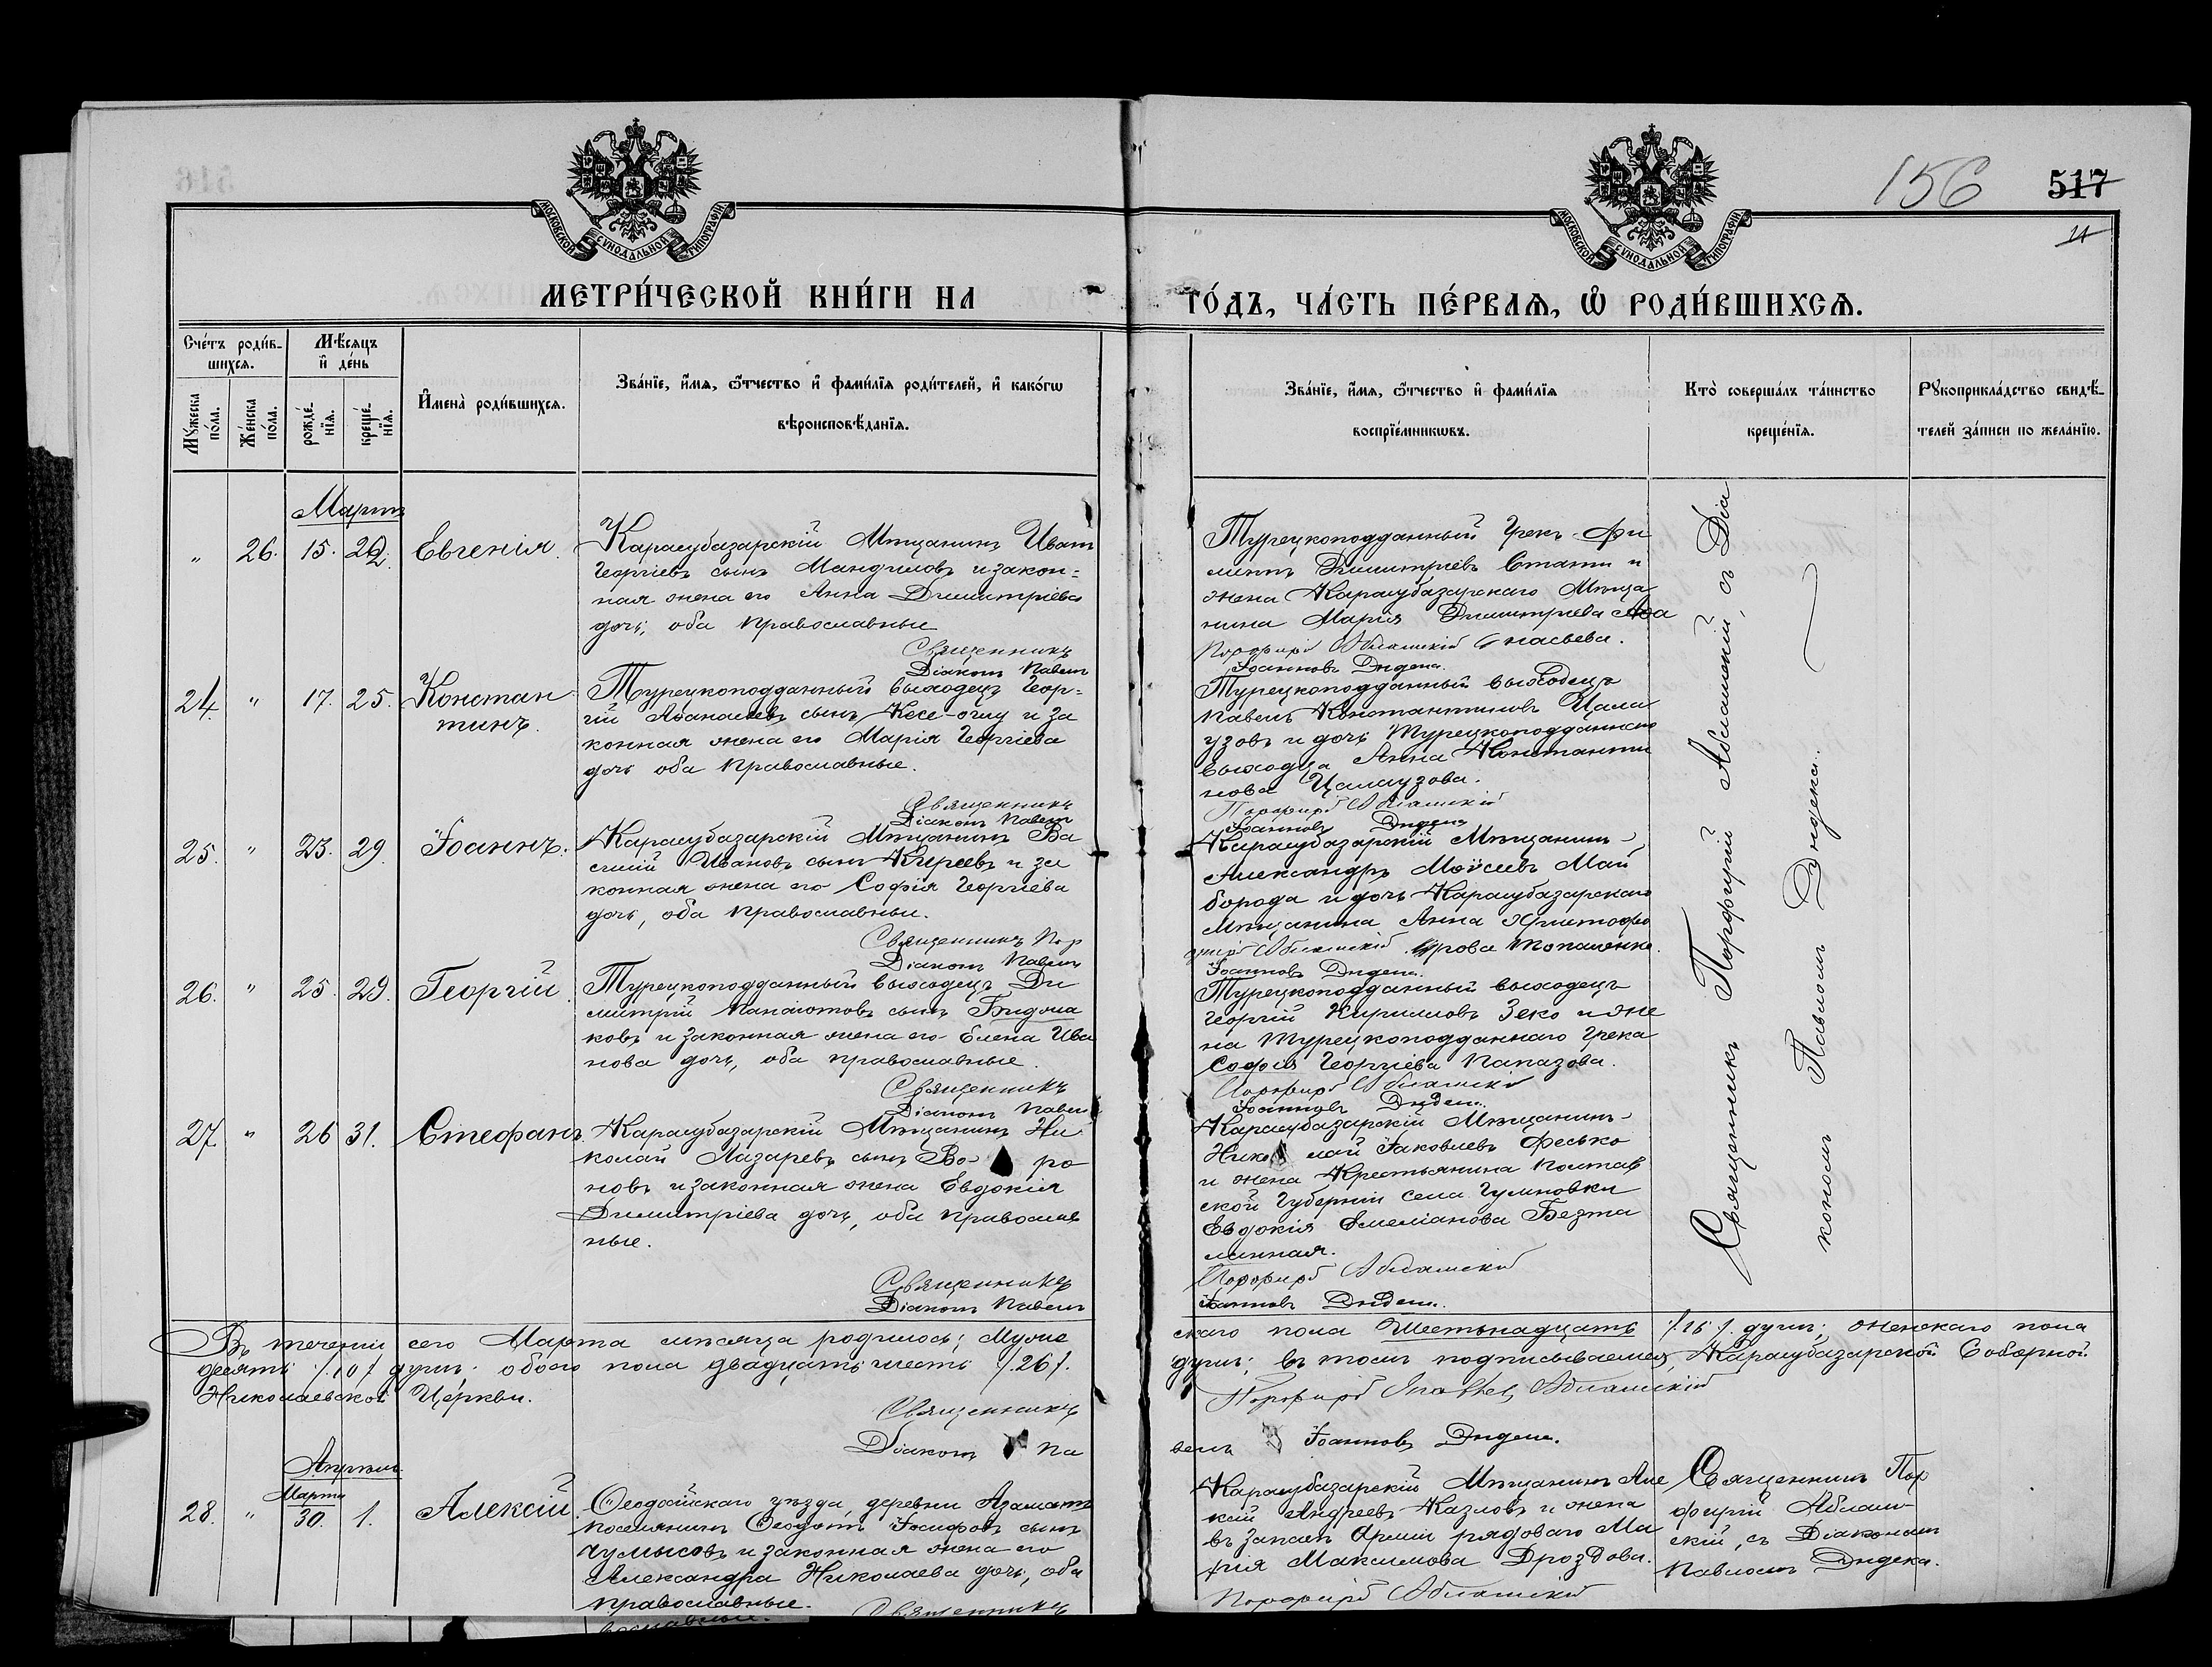 156 517
11
МОСКОВСКОЙ СѴНОДАЛЬНОЙ ТИПОГРАФІИ
МОСКОВСКОЙ СѴНОДАЛЬНОЙ ТИПОГРАФІИ
МЕТРИ́ЧЕСКОЙ КНИ́ГИ НА ГО́ДЪ, ЧА́СТЬ ПЕ́РВАЯ, Ѡ҆ РОДИ́ВШИХСЯ.
Сче́тъ роди́в-
шихся.
Мѣ́сяцъ
и҆ де́нь
Му́жеска
по́ла.
Же́нска
по́ла.
рожде́-
нїя.
креще́-
нїя.
И҆мена̀ роди́вшихся.
Зва́нїе, и҆́мя, ѻ҆́тчество и҆ фами́лїя роди́телей, и҆ како́гѡ
вѣроисповѣ́данїя.
Зва́нїе, и҆́мя, ѻ҆́тчество и҆ фами́лїя
воспрїе́мникѡвъ.
Кто̀ соверша́лъ та́инство
креще́нїя.
Рꙋкоприкла́дство свидѣ́-
телей за́писи по жела́нїю.
Мартъ
" 26. 15. 22. Евгенія.
Карасубазарскій Мѣщанинъ Иванъ
Георгіевъ сынъ Манджиловъ и закон=
ная жена его Анна Димитріева
дочь, оба православные
Священникъ
Діаконъ Павелъ
Турецкоподданный Грекъ Фи
липпъ Димитріевъ Стати и
жена Карасубазарскаго Мѣща
нина Марія Димитріева Афа
насьева.
Порфирій Аблашскій
Іоанновъ Дидека.
24. " 17. 25. Констан
тинъ.
Турецкоподданный выходецъ Геор=
гій Афанасіевъ сынъ Кесе-оглу и за
конная жена его Марія Георгіева
дочь оба православные.
Священникъ
Діаконъ Павелъ
Турецкоподданный выходецъ
Павелъ Константиновъ Цала
узовъ и дочь Турецкоподданнаго
выходца Анна Константи
нова Цалаузова.
Порфирій Аблашскій
Іоанновъ Дидека
25. " 23. 29. Іоаннъ.
Карасубазарскій Мѣщанинъ Ва
силій Ивановъ сынъ Киреевъ и за
конная жена его Софія Георгіева
дочь, оба православные.
Священникъ Пор
Діаконъ Павелъ
Карасубазарскій Мѣщанинъ
Александръ Моѵсеевъ Май
борода и дочь Карасубазарскаго
Мѣщанина Анна Христофо
рова
фирій Аблашскій
Іоанновъ Дидека.
26. " 25. 29. Георгій.
Турецкоподданный выходецъ Ди
митрій Панаіотовъ сынъ
ковъ и законная жена его Елена Ива
нова дочь, оба православные.
Священникъ
Діаконъ Павелъ
Турецкоподданный выходецъ
Георгій Кирилловъ Зеко и же
на Турецкоподданнаго Грека
Софія Георгіева Папазова.
Порфирій Аблашскій
Іоанновъ Дидека.
27. " 26 31. Стефанъ.
Карасубазарскій Мѣщанинъ Ни
колай Лазаревъ сынъ Во- ро
новъ и законная жена Евдокія
Димитріева дочь, оба православ
ные.
Священникъ
Діаконъ Павелъ
Карасубазарскій Мѣщанинъ
Нико лай Іаковлевъ Фесько
и жена Крестьянина Полтав
ской Губерніи села
Евдокія Емеліанова Безта
ланная.
Порфирій Аблашскій
Іоанновъ Дидека.
Священникъ Порфирій Аблашскій, съ Діа
кономъ Павломъ Дидека.
Въ теченіи сего Марта мѣсяца родилось; муже скаго пола Шестьнадцать /.16./. душъ; женскаго пола
десять /.10./ душъ. обоего пола двадцать шесть /.26./. душъ; въ томъ подписываемся, Карасубазарской Соборной
Николаевской Церкви.
Священникъ Порфирій Аблашскій
Діаконъ Па велъ Іоанновъ Дидека.
Апрѣль
28. " Марта 30. 1. Алексій
Ѳеодосійскаго уѣзда, деревни Азаматъ
поселянинъ Ѳеодотъ Іосифовъ сынъ
Чумысовъ и законная жена его
Александра Николаева дочь, оба
православные.
Священникъ
Карасубазарскій Мѣщанинъ Але
ксій Андреевъ Казловъ и жена
въ запасѣ Арміи рядоваго Ма
рія Максимова Дроздова.
Порфирій Аблашскій
Священникъ Пор
фирій Аблаш-
скій, съ Діакономъ
Павломъ Дидека.